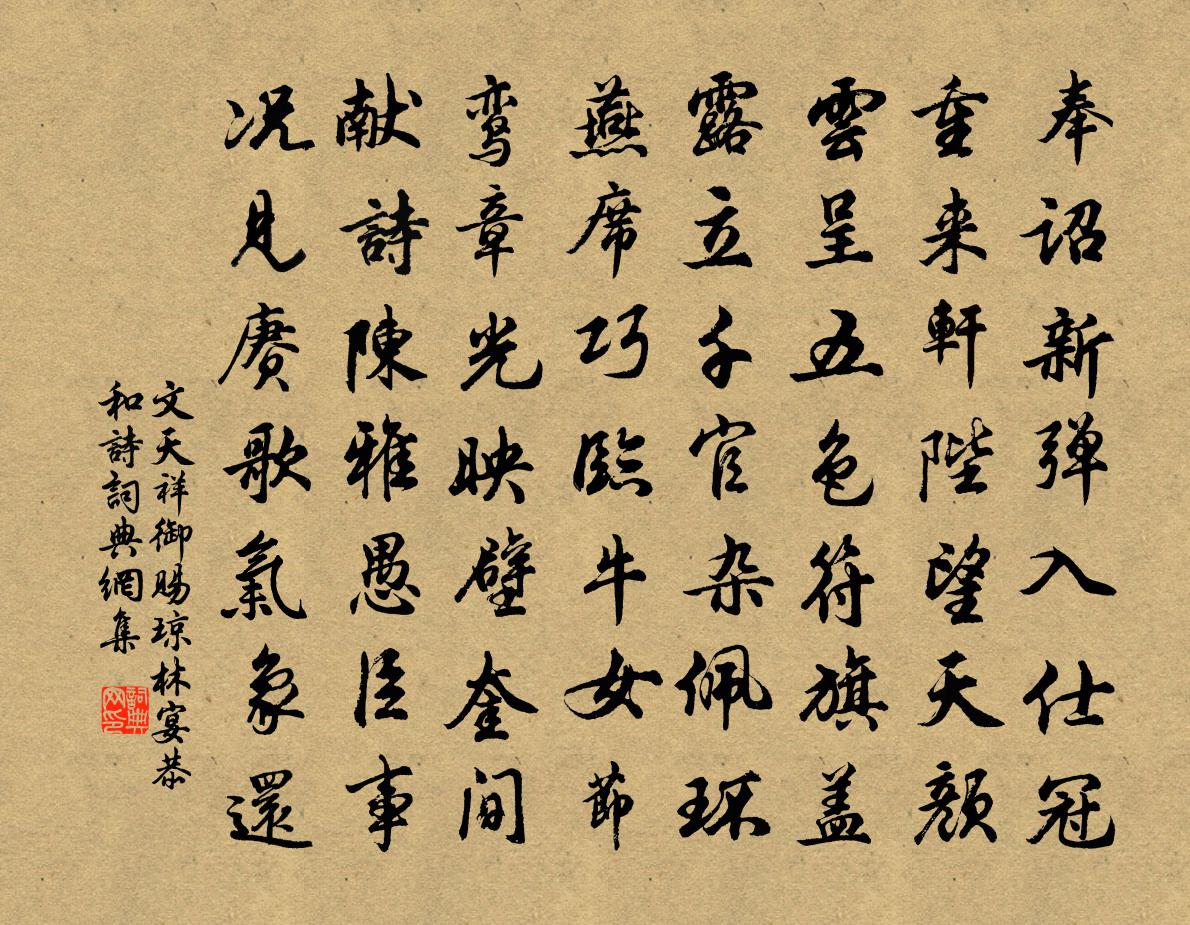 奉诏新弹入仕冠
重来軒陛望天颜
雲呈五色符旗盖
露立千官杂佩环
燕席巧臨牛女節
鸾章光映壁奎间
献詩陳雅愚臣事
况見赓歌氣象還
文天祥御赐琼林宴恭
和詩詞典網集
詞典网印